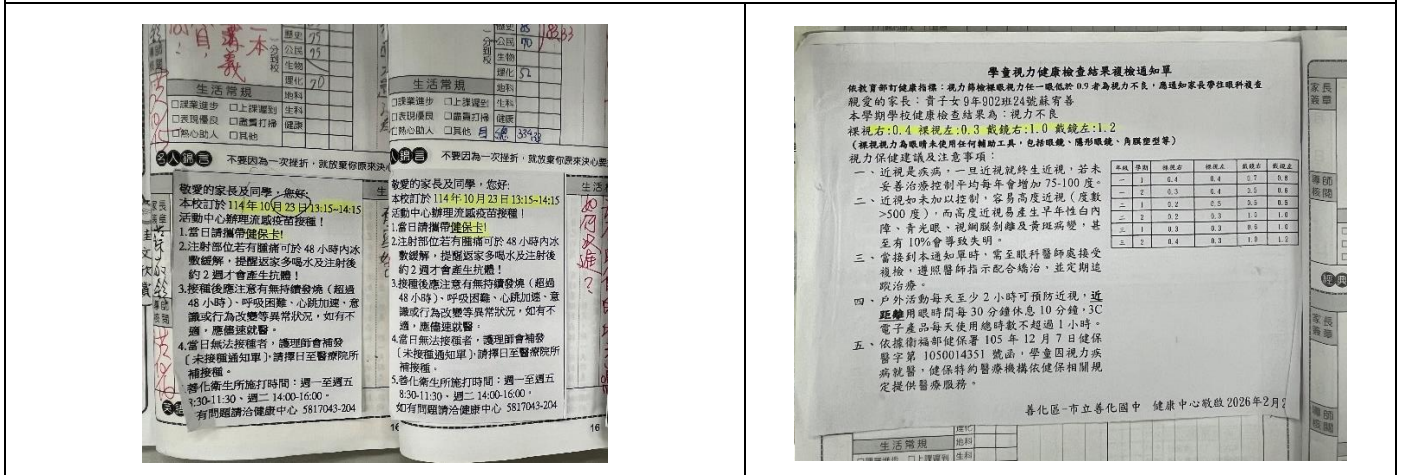 歷史 75
公民 95
生物
理化 70
地科
生科
健康
一本
講義
生活常規
□課業進步 □上課遲到
□表現優良 □盡責打掃
□熱心助人 □其他
名人錦言 不要因為一次挫折,就放棄你原來決心
敬愛的家長及同學,您好:
本校訂於 114年10月23日13:15~14:15
活動中心辦理流感疫苗接種!
1.當日請攜帶健保卡!
2.注射部位若有腫痛可於 48 小時內冰
敷緩解,提醒返家多喝水及注射後
約 2 週才會產生抗體!
3.接種後應注意有無持續發燒(超過
48 小時)、呼吸困難、心跳加速、意
識或行為改變等異常狀況,如有不
適,應儘速就醫。
4.當日無法接種者,護理師會補發
〔未接種通知單〕,請擇日至醫療院所
補接種。
善化衛生所施打時間:週一至週五
8:30-11:30、週二 14:00-16:00。
有問題請洽健康中心 5817043-204
16
歷史 85
公民 70
生物
理化 52
地科
生科
健康
生活常規
□課業進步 □上課遲到
□表現優良 □盡責打掃
□熱心助人 □其他
人錦言 不要因為一次挫折,就放棄你原來決心要
敬愛的家長及同學,您好:
本校訂於 114 年 10 月 23 日 13:15~14:15
活動中心辦理流感疫苗接種!
1.當日請攜帶健保卡!
2.注射部位若有腫痛可於 48 小時內冰
敷緩解,提醒返家多喝水及注射後
約 2 週才會產生抗體!
3.接種後應注意有無持續發燒(超過
48 小時)、呼吸困難、心跳加速、意
識或行為改變等異常狀況,如有不
適,應儘速就醫。
4.當日無法接種者,護理師會補發
〔未接種通知單〕,請擇日至醫療院所
補接種。
5.善化衛生所施打時間:週一至週五
8:30-11:30、週二 14:00-16:00。
如有問題請洽健康中心 5817043-204
如何改進?
16
學童視力健康檢查結果複檢通知單
依教育部訂健康指標:視力篩檢裸眼視力任一眼低於 0.9 者為視力不良,應通知家長帶往眼科複查
親愛的家長:貴子女9年902班24號蘇宥善
本學期學校健康檢查結果為:視力不良
裸視右:0.4 裸視左:0.3 戴鏡右:1.0 戴鏡左:1.2
(裸視視力為眼睛未使用任何輔助工具,包括眼鏡、隱形眼鏡、角膜塑型等)
視力保健建議及注意事項:
一、近視是疾病,一旦近視就終生近視,若未
妥善治療控制平均每年會增加 75-100 度。
二、近視如未加以控制,容易高度近視(度數
>500 度),而高度近視易產生早年性白內
障、青光眼、視網膜剝離及黃斑病變,甚
至有 10%會導致失明。
三、當接到本通知單時,需至眼科醫師處接受
複檢,遵照醫師指示配合矯治,並定期追
蹤治療。
四、戶外活動每天至少 2 小時可預防近視,近
距離用眼時間每 30 分鐘休息 10 分鐘,3C
電子產品每天使用總時數不超過 1 小時。
五、依據衛福部健保署 105 年 12 月 7 日健保
醫字第 1050014351 號函,學童因視力疾
病就醫,健保特約醫療機構依健保相關規
定提供醫療服務。
年級 學期 裸視右 裸視左 戴鏡右 戴鏡左
一 1 0.4 0.4 0.7 0.8
一 2 0.3 0.4
二 1 0.2
二 2 0.2 0.3 1.0
三 1 0.3 0.3
三 2 0.4 0.3 1.0 1.2
善化區-市立善化國中 健康中心敬啟 2026年2月
家長
簽章
導師
核閱
經典
家長
簽章
導師
核閱
生活常規
理化
地科
生科